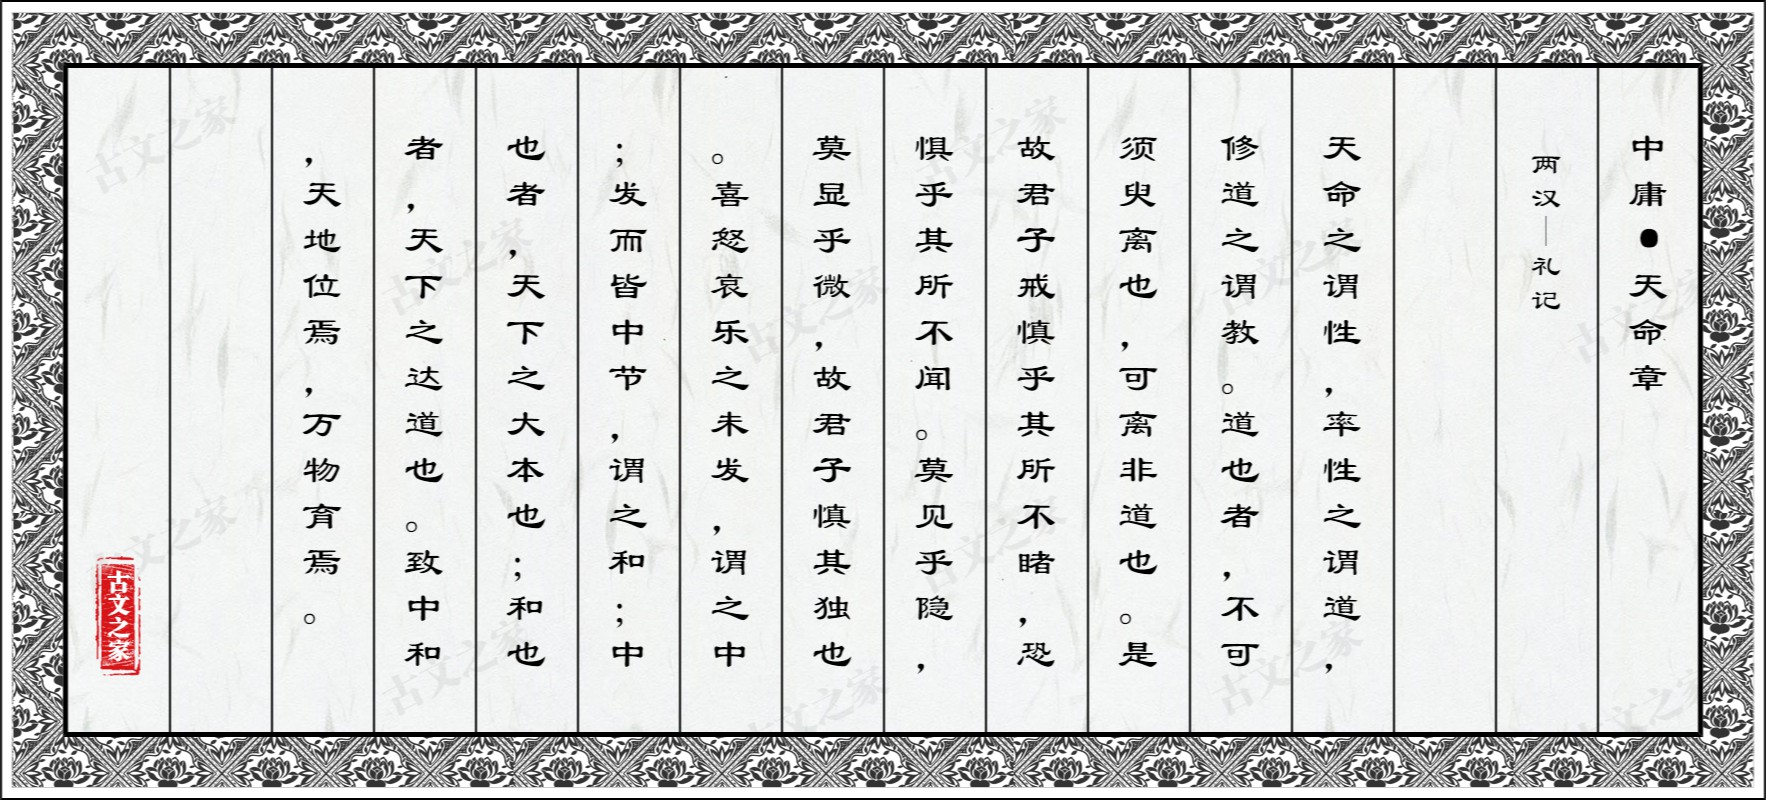 中庸●天命章
两汉—礼记
天命之谓性，率性之谓道，
修道之谓教。道也者，不可
须臾离也，可离非道也。是
故君子戒慎乎其所不睹，恐
惧乎其所不闻。莫见乎隐，
莫显乎微，故君子慎其独也
。喜怒哀乐之未发，谓之中
；发而皆中节，谓之和；中
也者，天下之大本也；和也
者，天下之达道也。致中和
，天地位焉，万物育焉。
古文之家